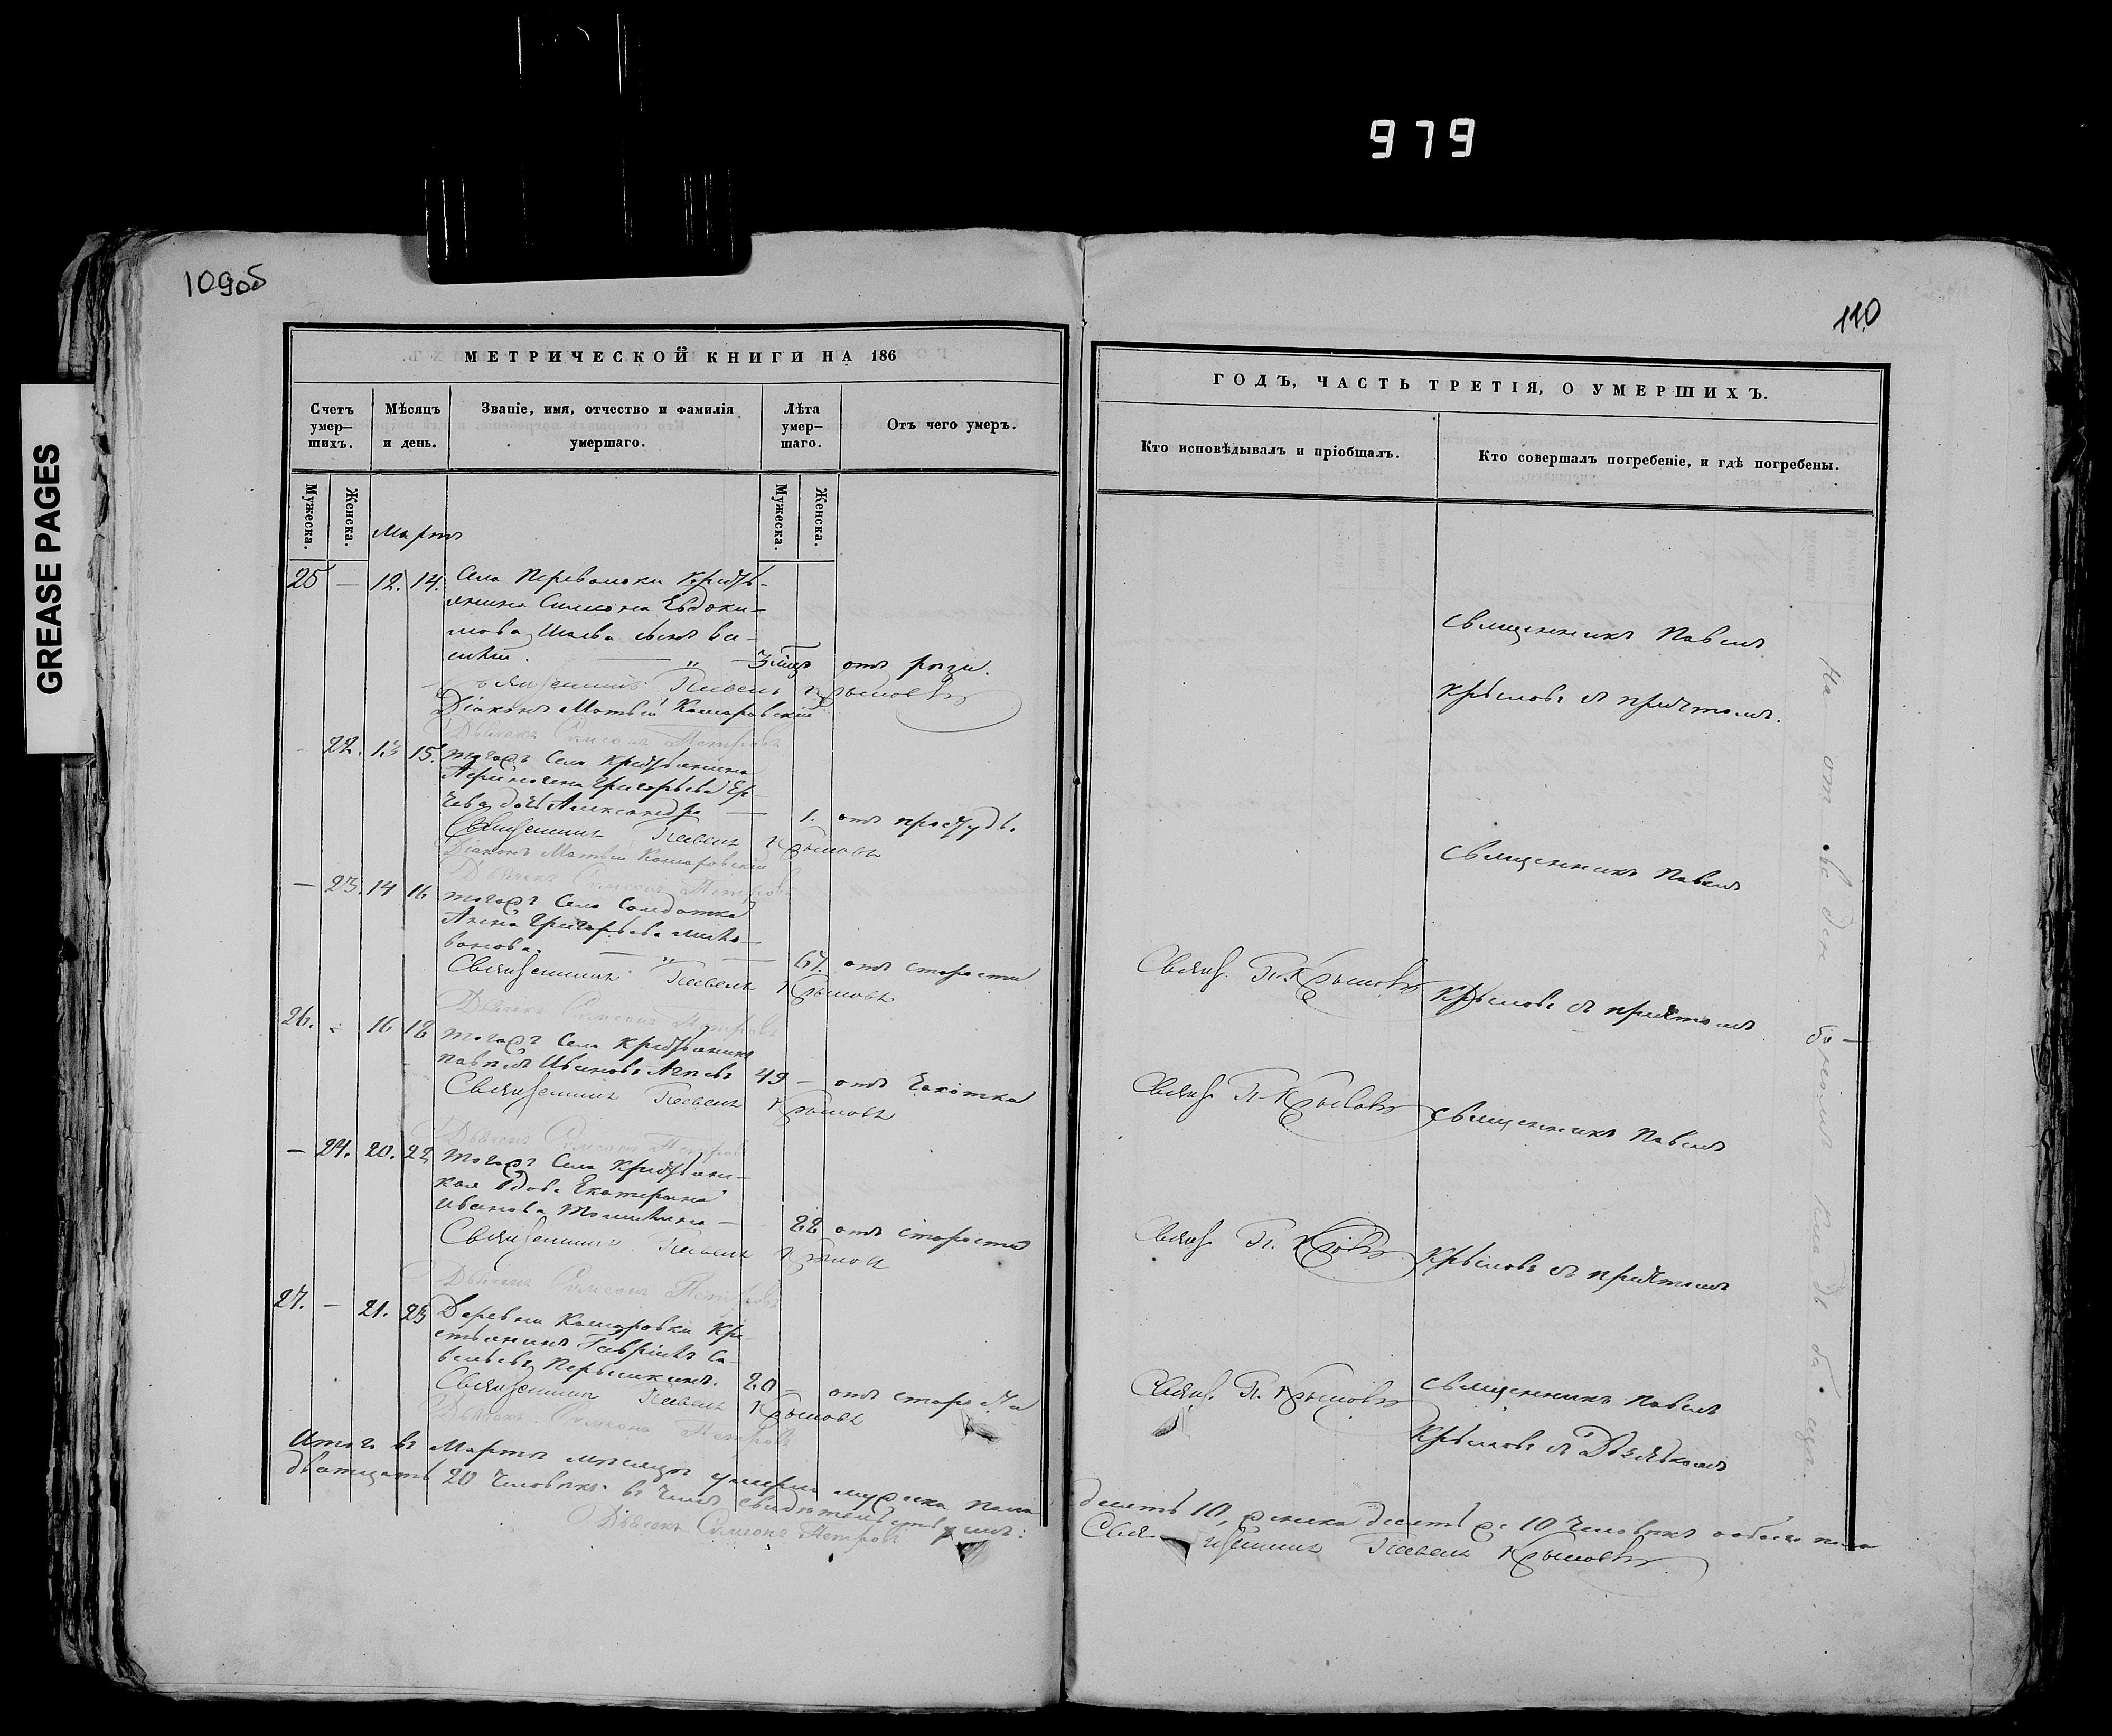 979
GREASE PAGES
109об
110
МЕТРИЧЕСКОЙ КНИГИ НА 186
Счетъ умер– шихъ.
Мѣсяцъ и день.
Званіе, имя, отчество и фамилія умершаго.
Лѣта умер– шаго.
Отъ чего умеръ.
Мужеска.
Женска.
Мужеска.
Женска.
Мартъ
25 — 12. 14. Села Переволоки Кресть-
янина Симеона Евдоки-
мова сынъ Ва-
силій. — " — 3 мѣс отъ
Священникъ Павелъ Крыловъ
Діаконъ Матѳей Комаровскій
Дьячекъ Симеонъ Петровъ
— 22. 13 15. тогожъ Села Крестьянина
Григорьева
дочь Александра — 1. отъ простуды.
Священникъ Павелъ Крыловъ
Діаконъ Матѳей Комаровскій
Дьячекъ Симеонъ Петровъ
— 23. 14 16 тогожъ Села Солдатка
Анна Григорьева
— " — 67. отъ старости
Священникъ Павелъ Крыловъ
Дьячекъ Симеонъ Петровъ
26. – 16 18 тогожъ Села Крестьянинъ
Ивановъ 49 — отъ чахотки
Священникъ Павелъ Крыловъ
Дьячекъ Симеонъ Петровъ
— 24. 20. 22 тогожъ Села Крестьянс-
кая вдова Екатерина
Иванова — 88 отъ старости
Священникъ Павелъ Крыловъ
Дьячекъ Симеонъ Петровъ
27. — 21. 23 Деревни Комаровки Кре-
стьянинъ Гавріилъ Са-
вельевъ 80 — отъ старости
Священникъ Павелъ Крыловъ
Дьячекъ Симеонъ Петровъ
Итого въ Мартѣ мѣсяцѣ умерло мужеска пола
двадцать 20 человѣкъ. въ чемъ свидѣтельствуемъ:
Дьячекъ Симеонъ Петровъ
ГОДЪ, ЧАСТЬ ТРЕТІЯ, О УМЕРШИХЪ.
Кто исповѣдывалъ и пріобщалъ.
Кто совершалъ погребеніе, и гдѣ погребены.
Священникъ Павелъ
Крыловъ съ причтомъ.
Священникъ Павелъ
Свящ. П. Крыловъ
Крыловъ съ причтомъ
Свящ. П. Крыловъ
Священникъ Павелъ
Свящ. П. Крыловъ
Крыловъ съ причтомъ
Свящ. П. Крыловъ
Священникъ Павелъ
Крыловъ съ Дьячкомъ
На отведенномъ кладбищѣ.
десять 10, женска десять 10 человѣкъ обоего пола
Священникъ Павелъ Крыловъ